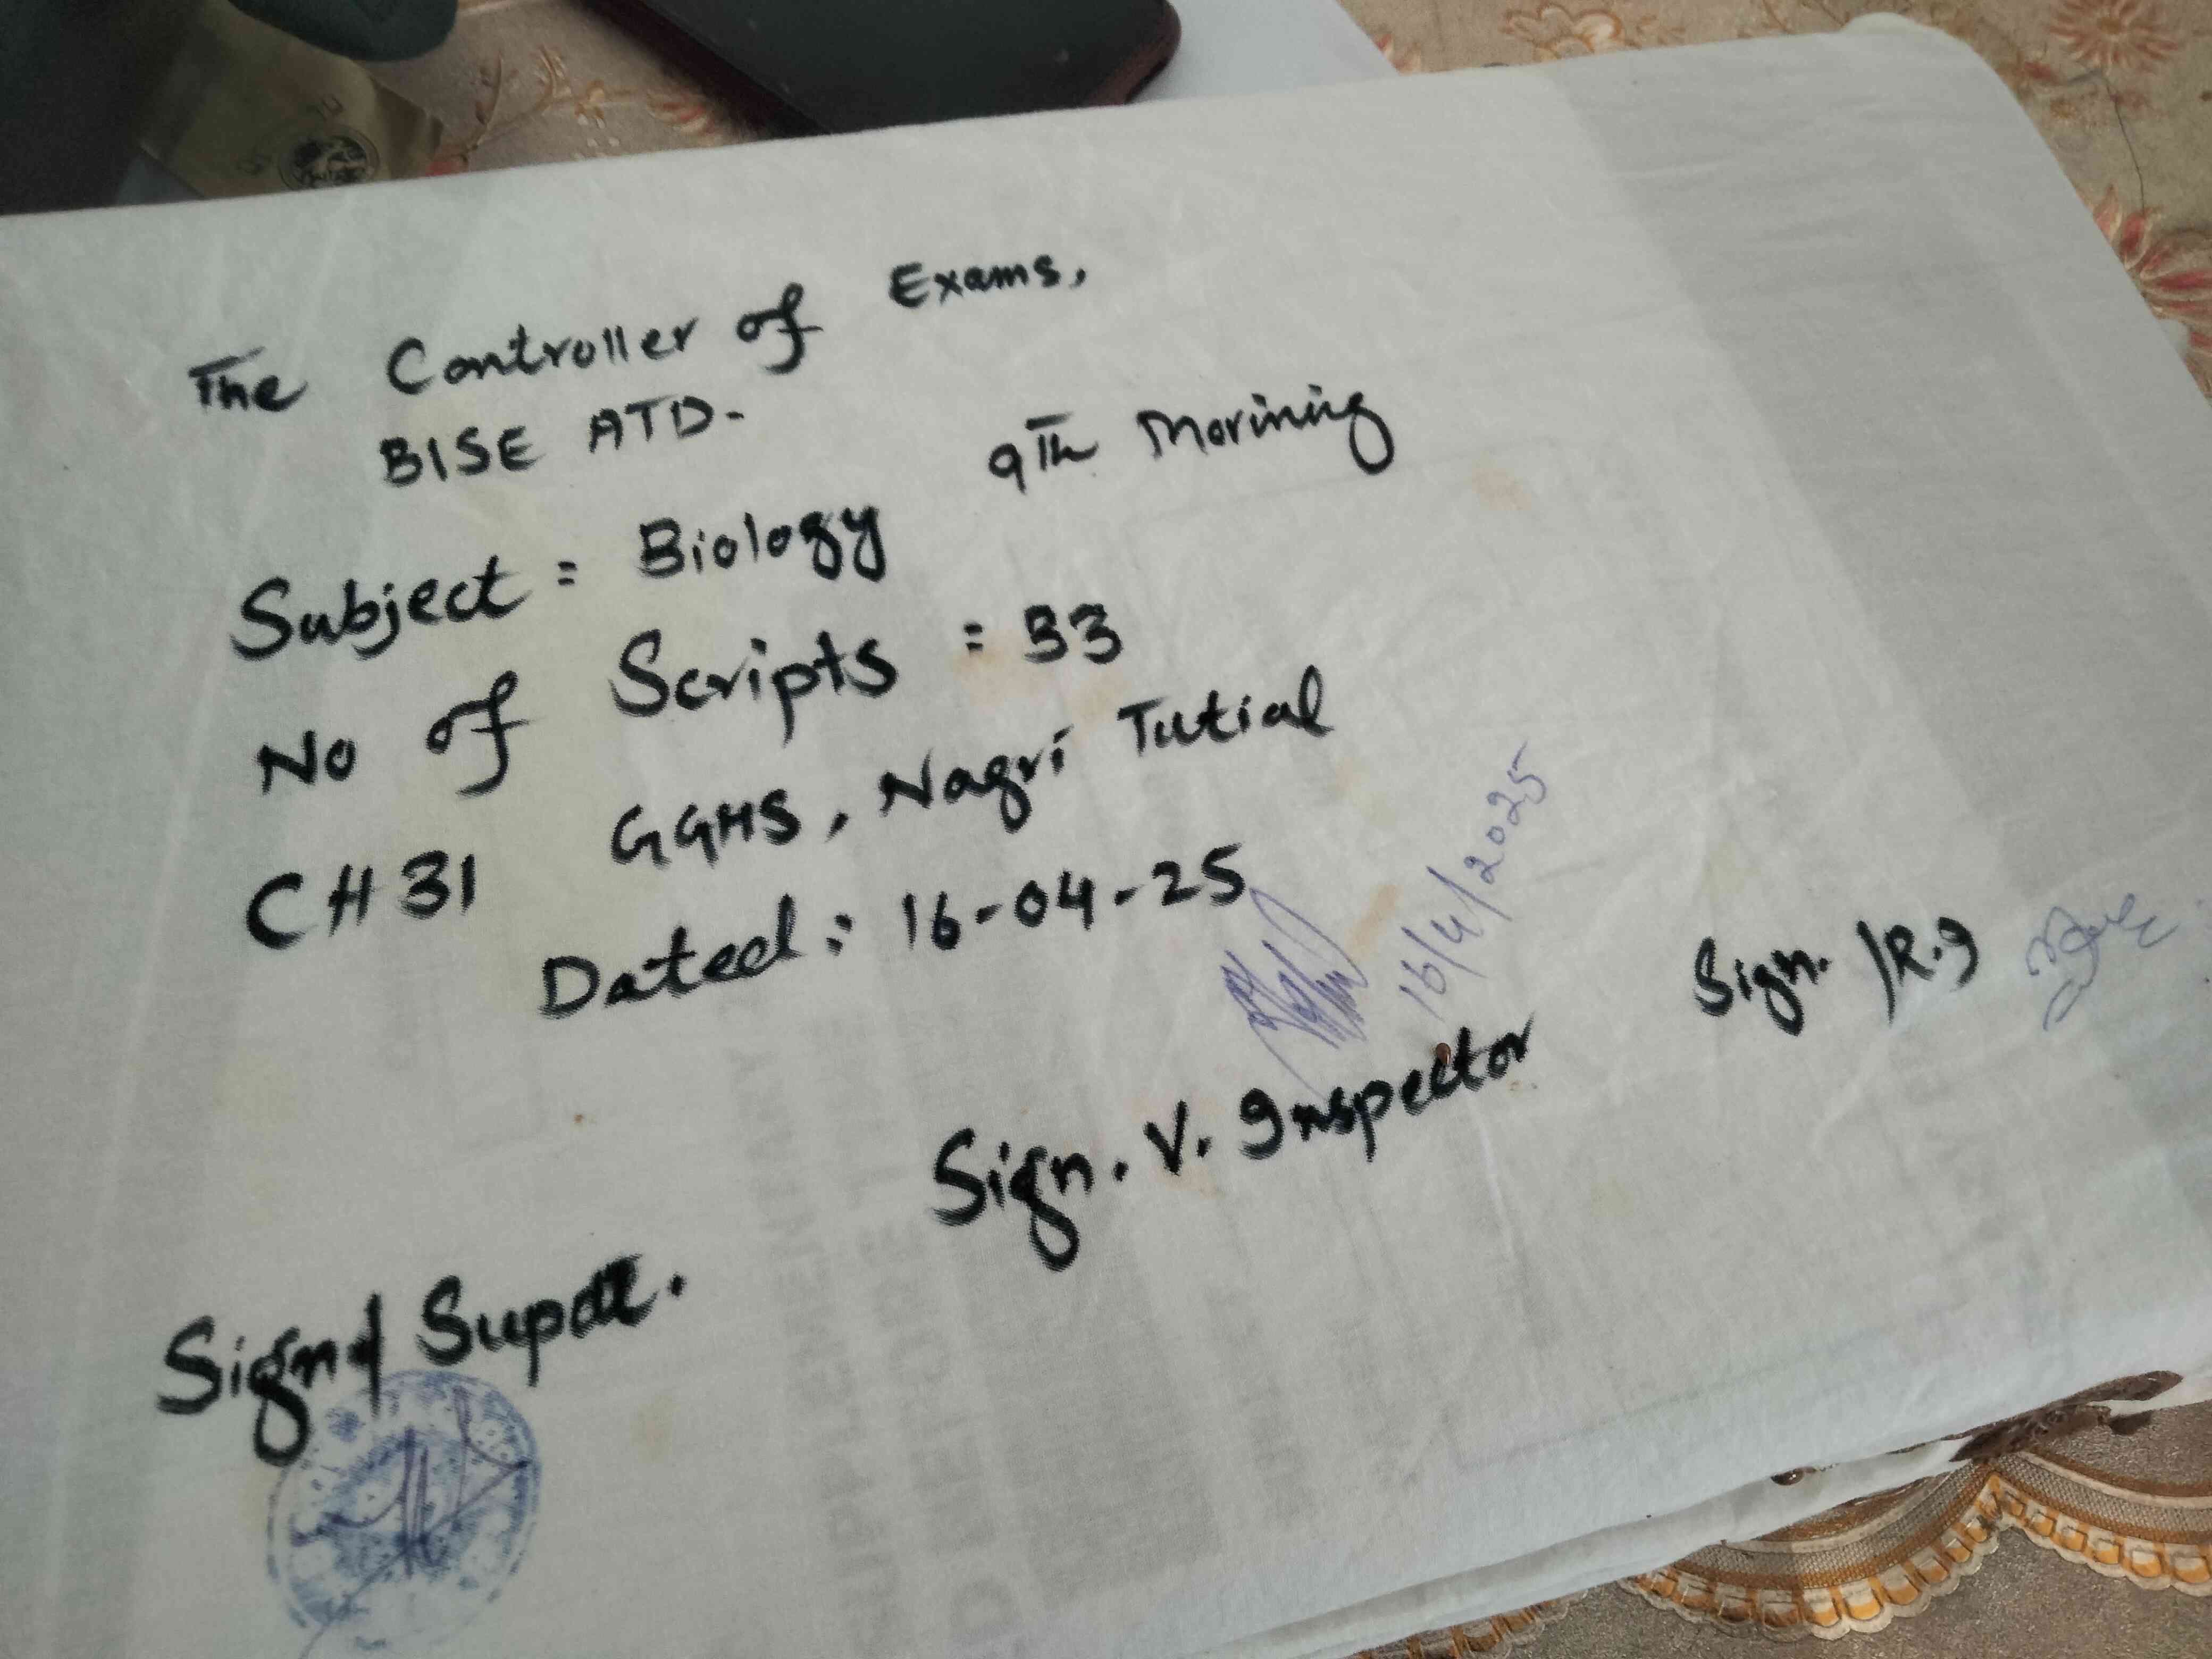 The Controller of Exams,
BISE ATD-
9Th Morining
Subject = Biology
No of Scripts = 33
CH 31 GGHS, Nagri Tutial
Dated: 16-04-25
16/4/2025
Sign. V. Inspector
Sign. /R.I
Sign/ Supdt.